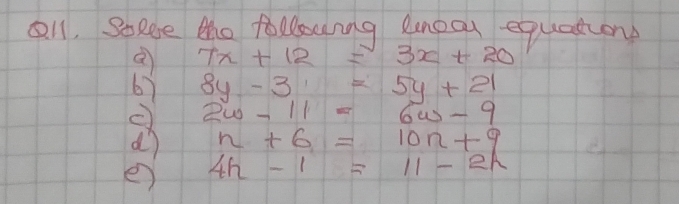 Q11. Solve the following linear equations
a) 7x + 12 = 3x + 20
b) 8y - 3 = 5y + 21
c) 2w - 11 = 6w - 9
d) n + 6 = 10n + 9
e) 4h - 1 = 11 - 2h